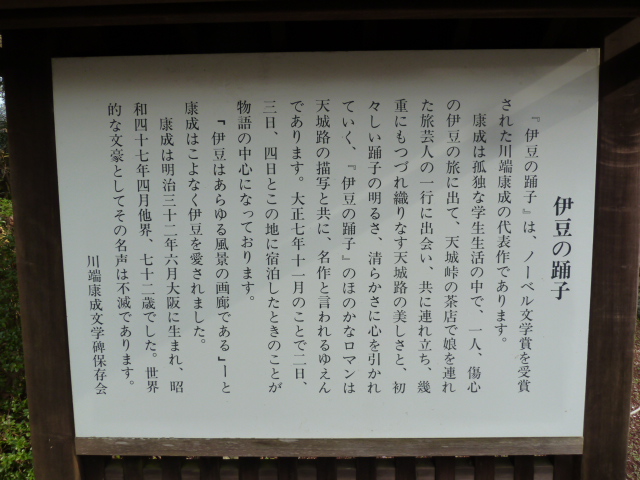 伊豆の踊子
『伊豆の踊子』は、ノーベル文学賞を受賞
された川端康成の代表作であります。
康成は孤独な学生生活の中で、一人、傷心
の伊豆の旅に出て、天城峠の茶店で娘を連れ
た旅芸人の一行に出会い、共に連れ立ち、幾
重にもつづれ織りなす天城路の美しさと、初
々しい踊子の明るさ、清らかさに心を引かれ
ていく、『伊豆の踊子』のほのかなロマンは
天城路の描写と共に、名作と言われるゆえん
であります。大正七年十一月のことで二日、
三日、四日とこの地に宿泊したときのことが
物語の中心になっております。
『伊豆はあらゆる風景の画廊である』ーと
康成はこよなく伊豆を愛されました。
康成は明治三十二年六月大阪に生まれ、昭
和四十七年四月他界、七十二歳でした。世界
的な文豪としてその名声は不滅であります。
川端康成文学碑保存会